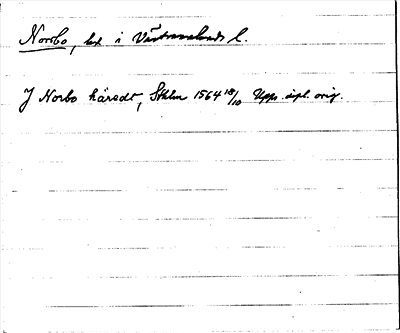 Norrbo, hd i Västmanlands l.
J Norbo häredt, Sthlm 1564 18/10 Upps. dipl. orig.